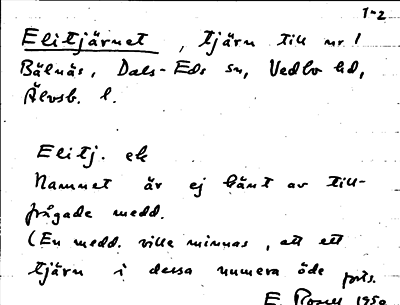 1-2
Elitjärnet, tjärn till nr 1
Bälnäs, Dals-Eds sn, Vedbo hd,
Älvsb. l.
Elitj. ek
Namnet är ej känt av till-
frågade medd.
(En medd. ville minnas, att ett
tjärn i dessa numera öde
E. 1950